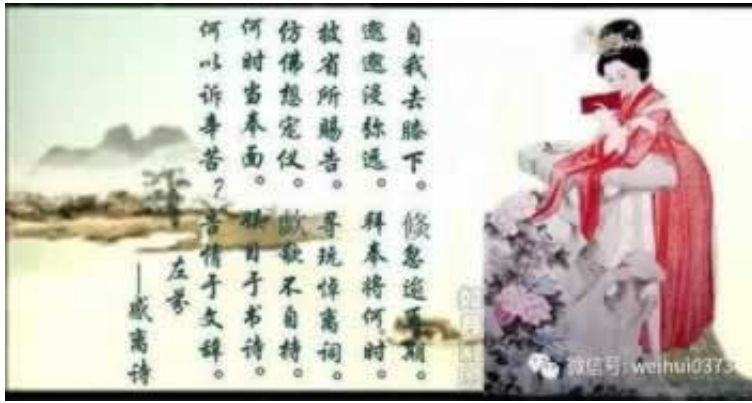 自我去膝下。倏忽逾再期。
邈邈浸弥远。拜奉将何时。
披省所赐告。寻玩悼离词。
仿佛想容仪。不自持。
何时当奉面。娱目于书诗。
何以诉辛苦?告情于文辞。
左芬
—感离诗
微信号: weihui0373